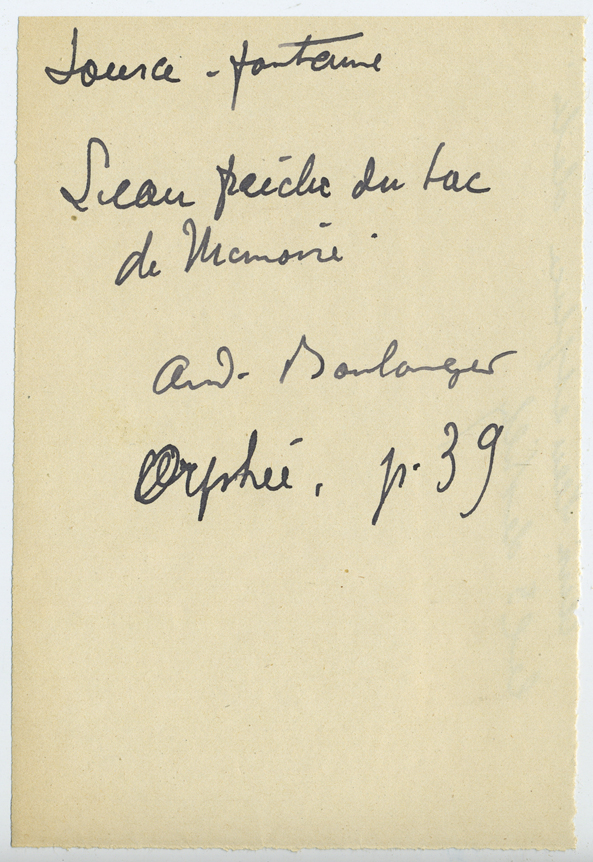 Source - fontaine
L'eau fraîche du Lac
de Mémoire.
And. Boulanger
Orphée, p. 39